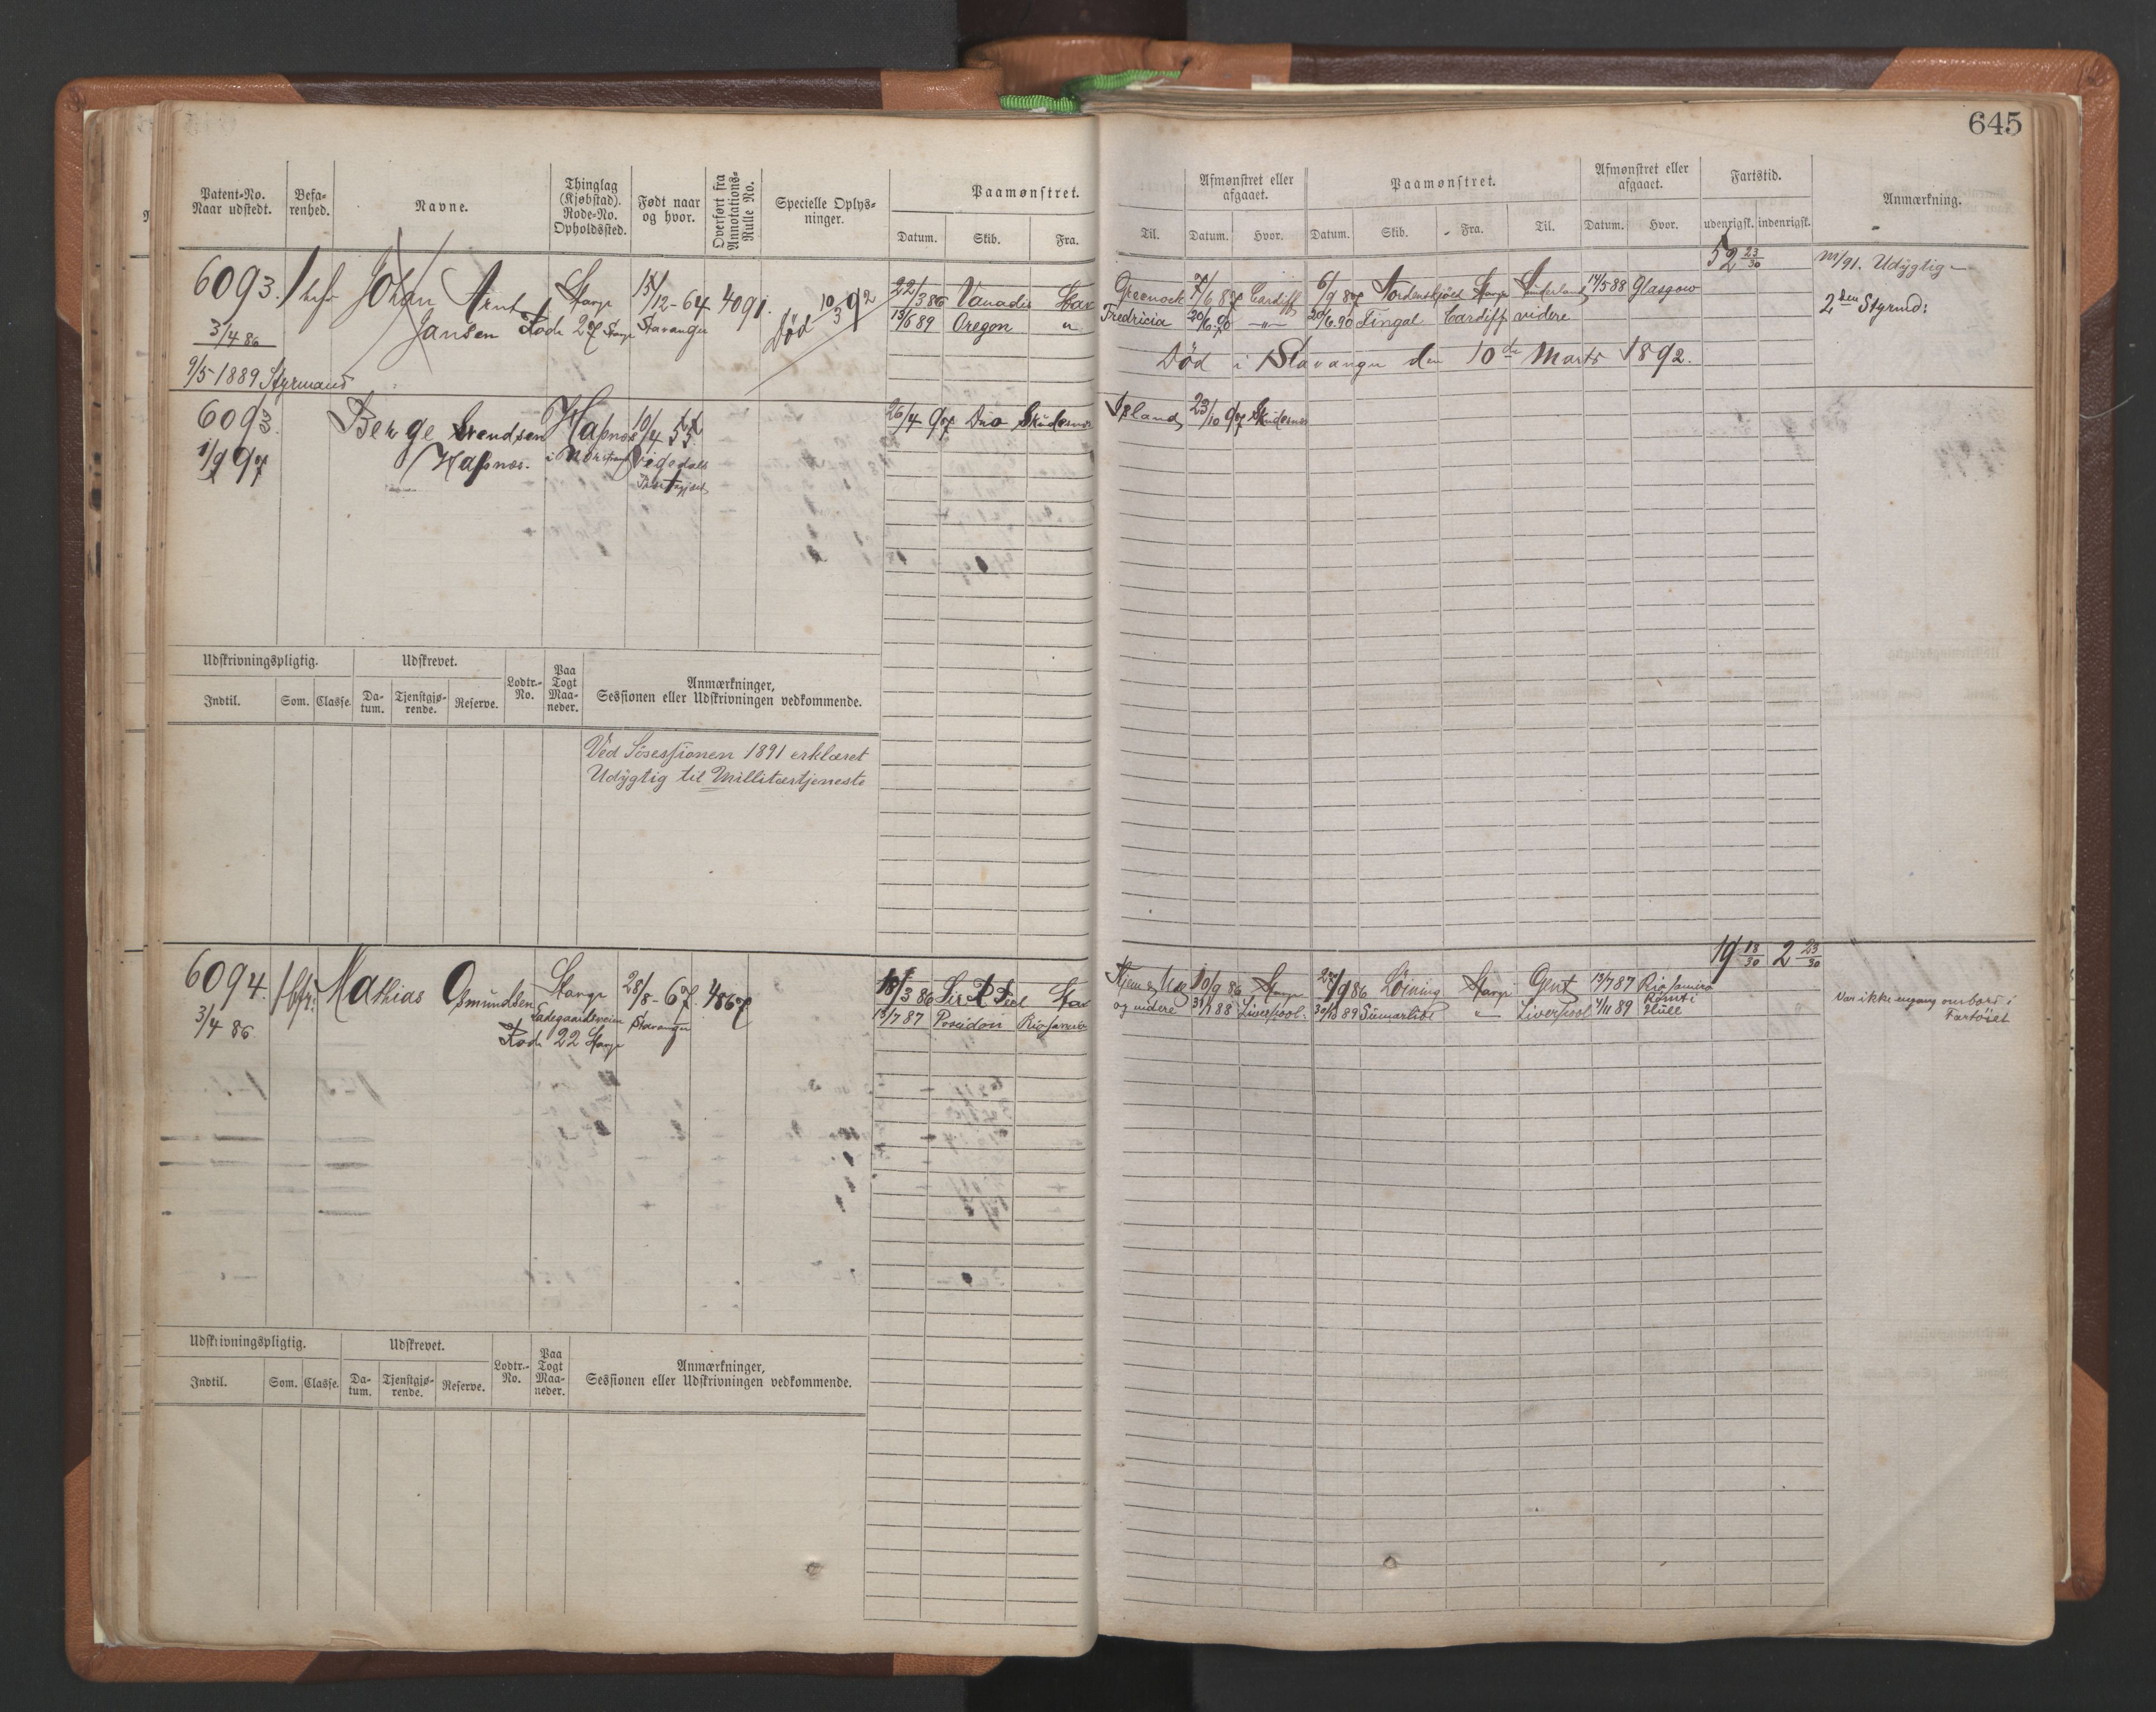 645
Patent-No.
Naar udstedt.
Befa-
renhed.
Navne.
Thinglag
(Kjøbstad).
Rode-No.
Opholdssted.
Født naar
og hvor.
Overført fra
Annotations-
Rulle No.
Specielle Oplys-
ninger.
Paamønstret.
Datum. Skib. Fra.
Til.
Afmønstret eller
afgaaet.
Datum. Hvor.
Paamønstret.
Datum. Skib. Fra. Til.
Afmønstret eller
afgaaet.
Datum. Hvor.
Fartstid.
udenrigsk. indenrigsk.
Anmærkning.
6093.
3/4 86
9/5 1889 Styrmand
Johan Arnt
Jansen
Stavgr
Rode 27 Stavgr
15/12-64
Stavanger
4091.
Død 10/3 92
22/3 86 Vanadis Stav
13/6 89 Oregon "
Greenock 7/6 87 Cardiff 6/9 87 Nordenskjøld Stavgr Sunderland 14/5 88 Glasgow
Fredricia 20/6.90 -"- 20/6.90 Fingal Cardiff videre
Død i Stavanger den 10de Marts 1892.
52 23/30
M/91. Udygtig
2den Styrmd:
6093.
1/9 97
Berge Svendsen
Hapnes.
Hapnes
i Norstrand
10/4 55
Vigedals
Præstegjæld
26/4 97 Duo Skudesnes
Island 23/10 97 Skudesnes
Udskrivningspligtig.
Indtil. Som. Classe.
Udskrevet.
Da-
tum.
Tjenstgjø-
rende.
Reserve.
Lodtr.-
No.
Paa
Togt
Maa-
neder.
Anmærkninger,
Sessionen eller Udskrivningen vedkommende.
Ved Søsessionen 1891 erklæret
Udygtig til Millitærtjeneste
6094.
3/4 86.
Mathias Osmundsen
Stavgr
Ladegaardsveien
Rode 22 Stavgr
28/8-67.
Stavanger
4867
18/3 86 Sir R Peel Stav
13/7 87 Poseidon Rio Janeiro
10/9 86 Stavgr 27/9 86 Løining Stavgr Gent 13/7 87 Rio Janeiro
og videre 31/1 88 Liverpool 30/10 89 Sumarlide " Liverpool 1/11 89 Rømt i
Hull
19 18/30 2 23/30
Var ikke engang ombord i
Fartøiet
Udskrivningspligtig.
Indtil. Som. Classe.
Udskrevet.
Da-
tum.
Tjenstgjø-
rende.
Reserve.
Lodtr.-
No.
Paa
Togt
Maa-
neder.
Anmærkninger,
Sessionen eller Udskrivningen vedkommende.